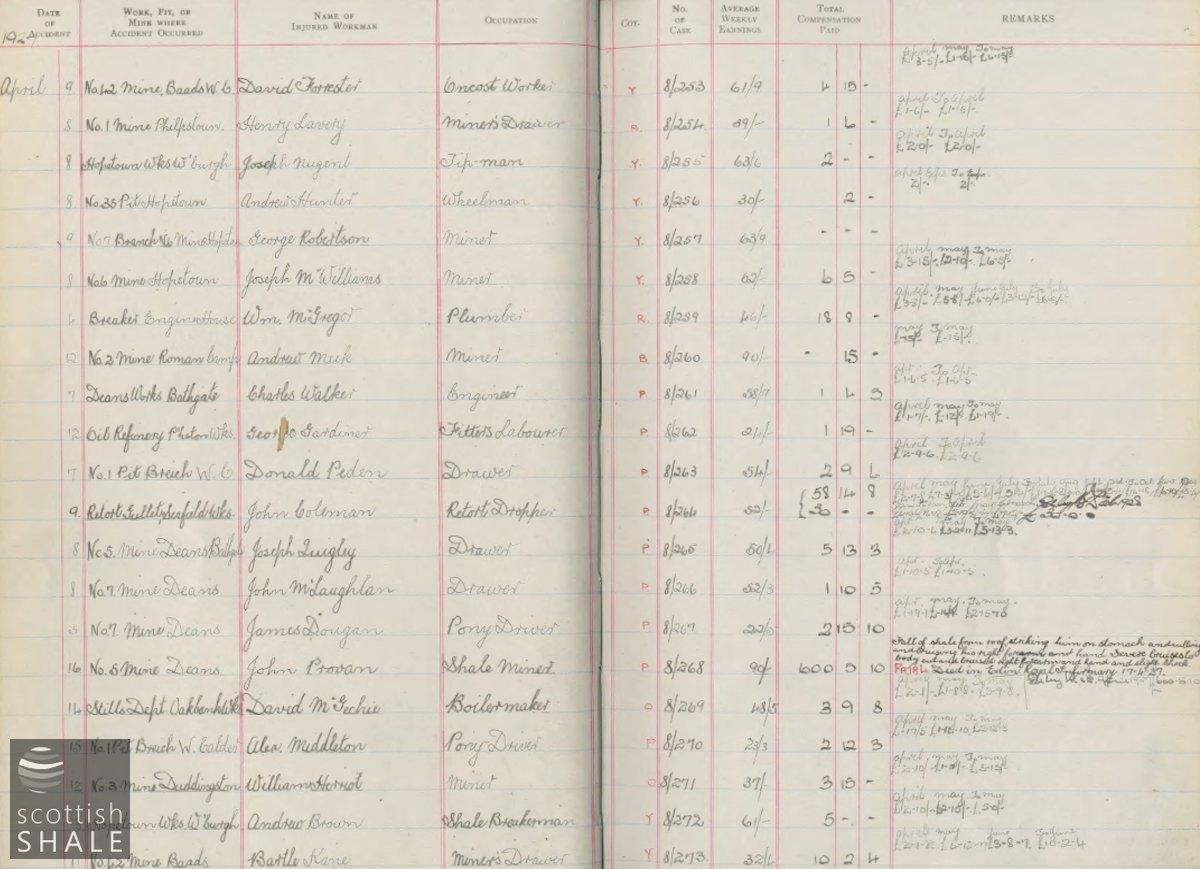 DATE OF ACCIDENT WORK, PIT, OR MINE WHERE ACCIDENT OCCURRED NAME OF INJURED WORKMAN OCCUPATION COY. NO. OF CASE AVERAGE WEEKLY EARNINGS TOTAL COMPENSATION PAID REMARKS
1927
April May To May
£3-5/- £1-10/- £4-15/-
April 9 No. 42 Mine, Baads W.C. David Forrester Oncost Worker Y 8/253 61/9 4 15 -
April To April
£1-6/- £1-6/-
8 No. 1 Mine Philpstoun Henry Lavery Miner's Drawer R. 8/254 39/- 1 6 -
April To April
£2-0/- £2-0/-
8 Hopetown Wks W'burgh Joseph Nugent Tip-man Y. 8/255 63/6 2 - -
2/- 2/-
8 No. 35 Pit Hopetown Andrew Hunter Wheelman Y. 8/256 30/- 2 -
9 No 7 Branch No 6 Mine Hopeton George Robertson Miner Y. 8/257 63/9 - - -
April May To May
£3-15/- £2-10/- £6-5/-
8 No. 6 Mine Hopetown Joseph McWilliams Miner Y. 8/258 62/- 6 5 -
April May June July To July
4 Breaker Engine House Wm. McGregor Plumber R. 8/259 46/- 18 8 -
May To May
£-15/- £-15/-
12 No. 2 Mine Roman Camp Andrew Meek Miner B 8/260 90/- - 15 -
Apr. To Apr.
£1-6-5 £1-6-5
7 Deans Works Bathgate Charles Walker Engineer P 8/261 58/7
April May To May
£1-7/- £-12/- £1-19/-
12 Oil Refinery Pheton Wks. George Gardiner Fitter's Labourer P. 8/262 24/- 1 19 -
April To April
£2-9-6 £2-9-6
7 No. 1 Pit Breich W.C. Donald Peden Drawer P 8/263 54/- 2 9 6
April May June July
58 14 8
9. Retort Gullet, Seafield Wks. John Coleman Retort Dropper P 8/264 52/- 30 - -
£30-0-0
Apr. May To May
£2-10-6 £5-13-3.
8 No 5. Mine Deans Bathgate Joseph Quigley Drawer P 8/265 50/4 5 13 3
Apr. To Apr.
£1-10-5 £1-10-5.
8 No. 7. Mine Deans John McLaughlan Drawer P 8/266 52/3 1 10 5
Apr. May. To May.
5 No. 7. Mine Deans James Dougan Pony Driver P. 8/267 22/5 2 15 10
Fall of shale from roof striking him on stomach and
and bruising his right forearm and hand Severe bruises to
body cut and bruised right forearm and hand and slight shock.
16 No. 5 Mine Deans John Provan Shale Miner P 8/268 90/- 600 5 10 FATAL Died in Edin Royal Infirmary 17-4-27.
April May To May
£2-1/- £1-8-8 £3-9-8.
14 Stills Dept Oakbank Wks David McGechie Boilermaker O 8/269 48/5 3 9 8
April May To May
15 No. 1 Pit Breich W. Calder Alex. Middleton Pony Driver P 8/270 23/3 2 12 3
April May To May
£2-10/- £1-5/- £3-15/-
12 No. 3 Mine Duddingston William Herriot Miner O 8/271 37/- 3 15 -
April May To May
£2-10/- £2-10/- £5-0/-
Hopetown Wks W'burgh Andrew Brown Shale Breakerman Y 8/272 61/- 5 - -
April May June To June
£2-1-2 £3-8-7 £10-2-4
11 No. 42 Mine Baads Bartle Kane Miner's Drawer Y 8/273. 32/4 10 2 4
scottish
SHALE